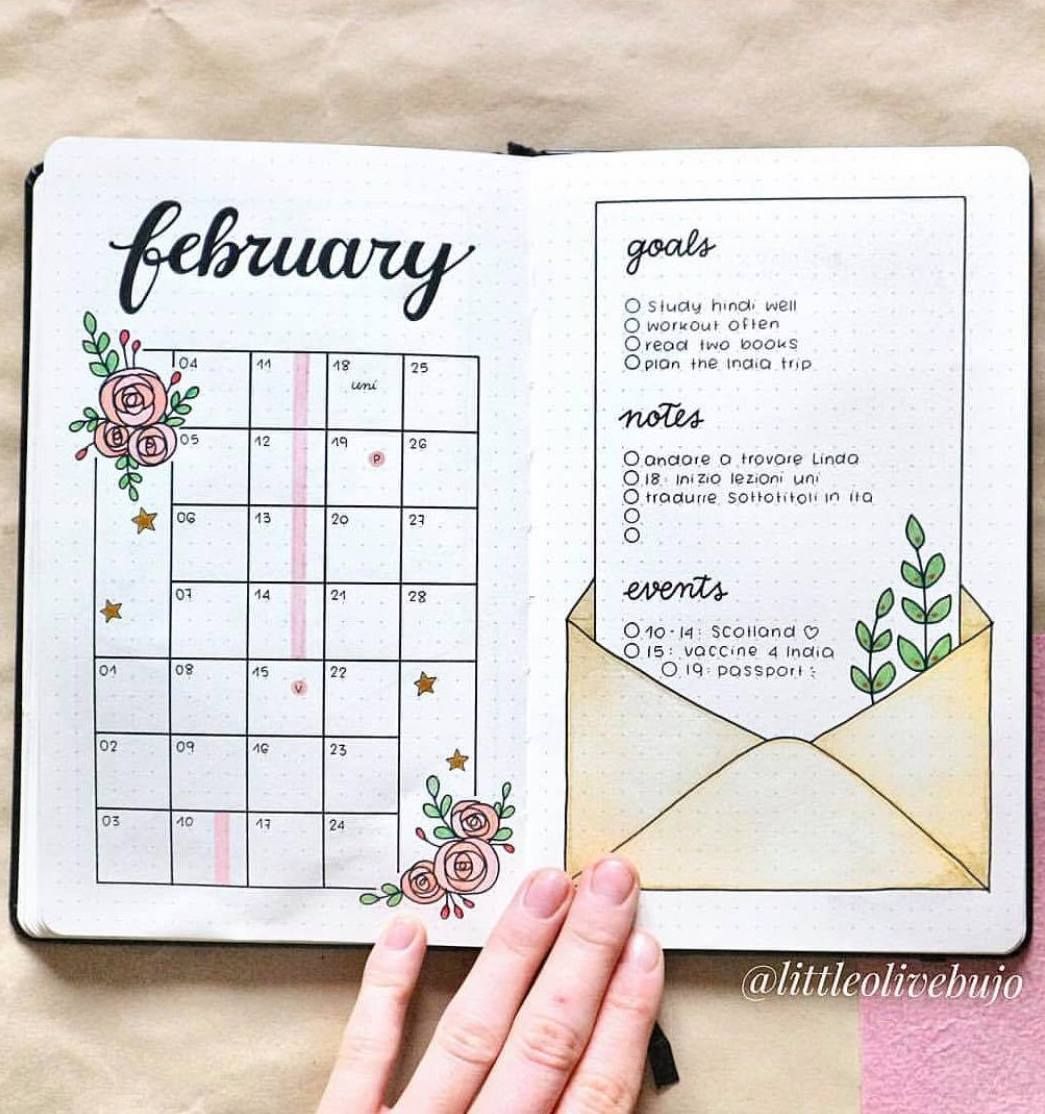 february
04 11 18 25
uni
05 12 19 26
P
06 13 20 27
07 14 21 28
01 08 15 22
V
02 09 16 23
03 10 17 24
goals
study hindi well
workout often
read two books
plan the India trip
notes
andare a trovare Linda
18: inizio lezioni uni
tradurre sottotitoli in ita
events
10-14: Scotland ♡
15: vaccine 4 India
19: passport :
@littleolivebujo